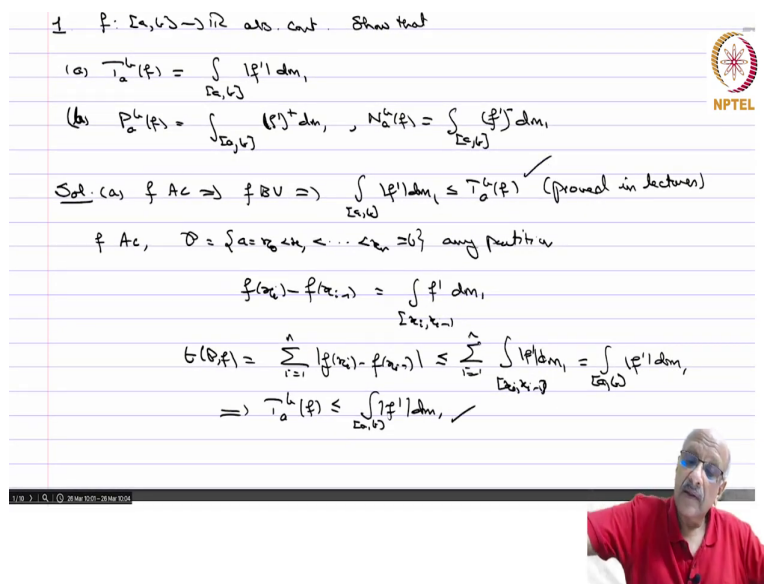 1. f: [a,b] → ℝ abs. cont. Show that
(a) T_a^b(f) = ∫_{[a,b]} |f'| dm_1
(b) P_a^b(f) = ∫_{[a,b]} (f')^+ dm_1, N_a^b(f) = ∫_{[a,b]} (f')^- dm_1
Sol. (a) f AC ⇒ f BV ⇒ ∫_{[a,b]} |f'| dm_1 ≤ T_a^b(f) ✓ (proved in lectures)
f AC, P = {a = x_0 < x_1 < ... < x_n = b} any partition
f(x_i) - f(x_{i-1}) = ∫_{[x_i, x_{i-1}]} f' dm_1
t(P,f) = Σ_{i=1}^n |f(x_i) - f(x_{i-1})| ≤ Σ_{i=1}^n ∫_{[x_i, x_{i-1}]} |f'| dm_1 = ∫_{[a,b]} |f'| dm_1
⇒ T_a^b(f) ≤ ∫_{[a,b]} |f'| dm_1 ✓
NPTEL
1/10 26 Mar 10:01 - 26 Mar 10:04